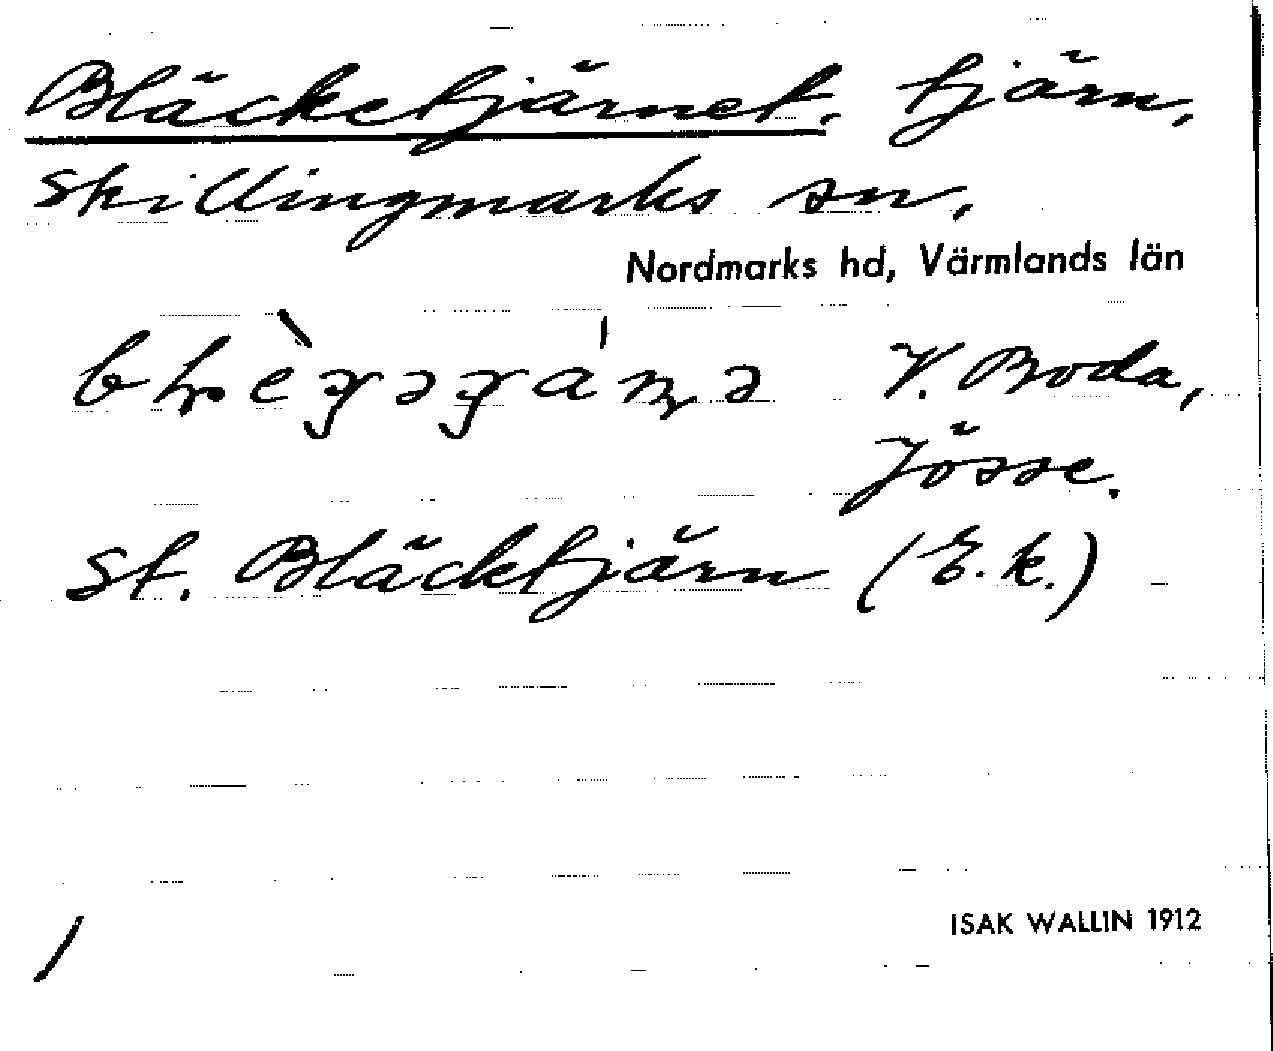 Bläcketjärnet. tjärn,
Skillingmarks sn.
Nordmarks hd, Värmlands län
V. Boda,
Jösse.
St. Bläcktjärn (E.k.)
ISAK WALLIN 1912